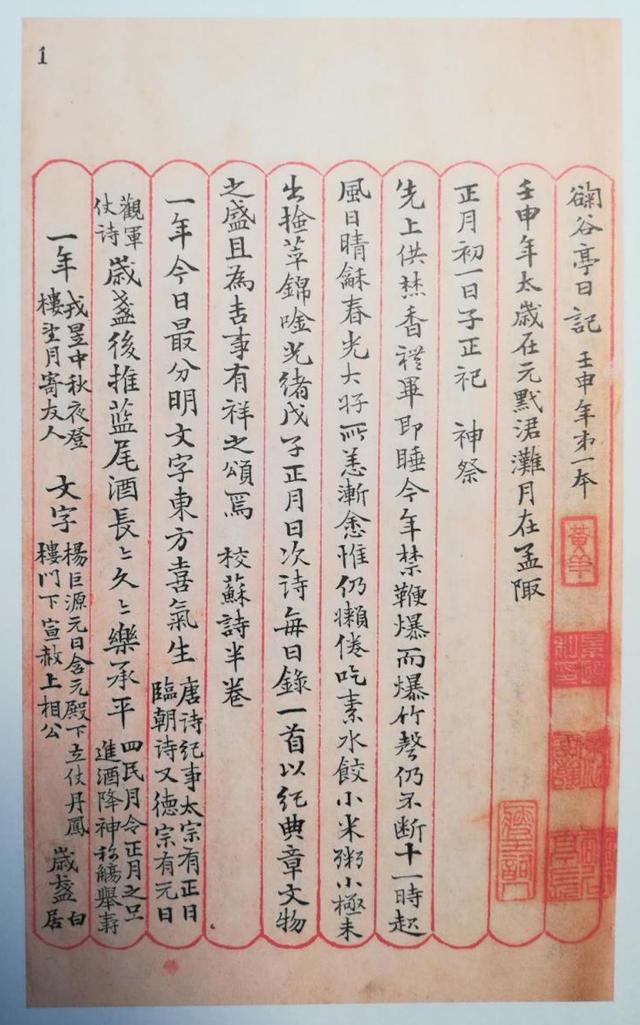 1
鞠谷亭日記 壬申年第一本
黃羊
壬申年太歲在元黓涒灘月在孟陬
正月初一日子正祀 神祭
先上供焚香禮畢即睡今年禁鞭爆而爆竹聲仍不斷十一時起
風日晴龢春光大好所恙漸愈惟仍懶倦吃素水餃小米粥小極未
出撿萃錦唫光緒戊子正月日次詩每日錄一首以紀典章文物
之盛且為吉事有祥之頌焉 校蘇詩半卷
一年今日最分明文字東方喜氣生 唐詩紀事太宗有正日
臨朝詩又德宗有元日
觀軍
仗詩 歲盞後推藍尾酒長〻久〻樂承平 四民月令正月之旦
進酒降神称觴舉壽
一年 戎昱中秋夜登
樓望月寄友人 文字 楊巨源元日含元殿下立仗丹鳳
樓門下宣赦上相公 歲盞 白
居